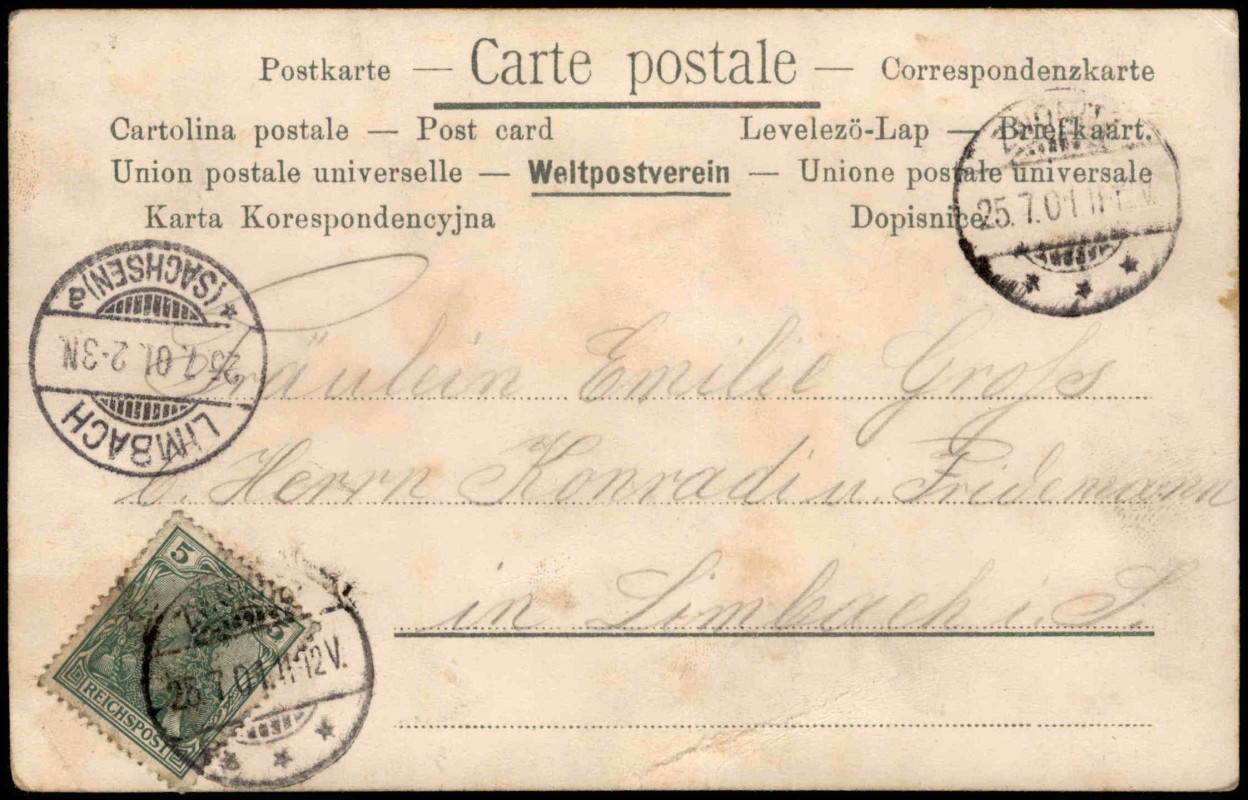 Postkarte — Carte postale — Correspondenzkarte
Cartolina postale — Post card Levelezö-Lap — Briefkaart.
Union postale universelle — Weltpostverein — Unione postale universale
Karta Korespondencyjna Dopisnice
25.7.01.11-12V.
* (SACHSEN) a
25.7.01.2-3N.
LIMBACH
Fräulein Emilie Groß
b. Herrn Konradi u. Fridemann
in Limbach i. S.
5
5
REICHSPOST
25.7.01.11-12V.